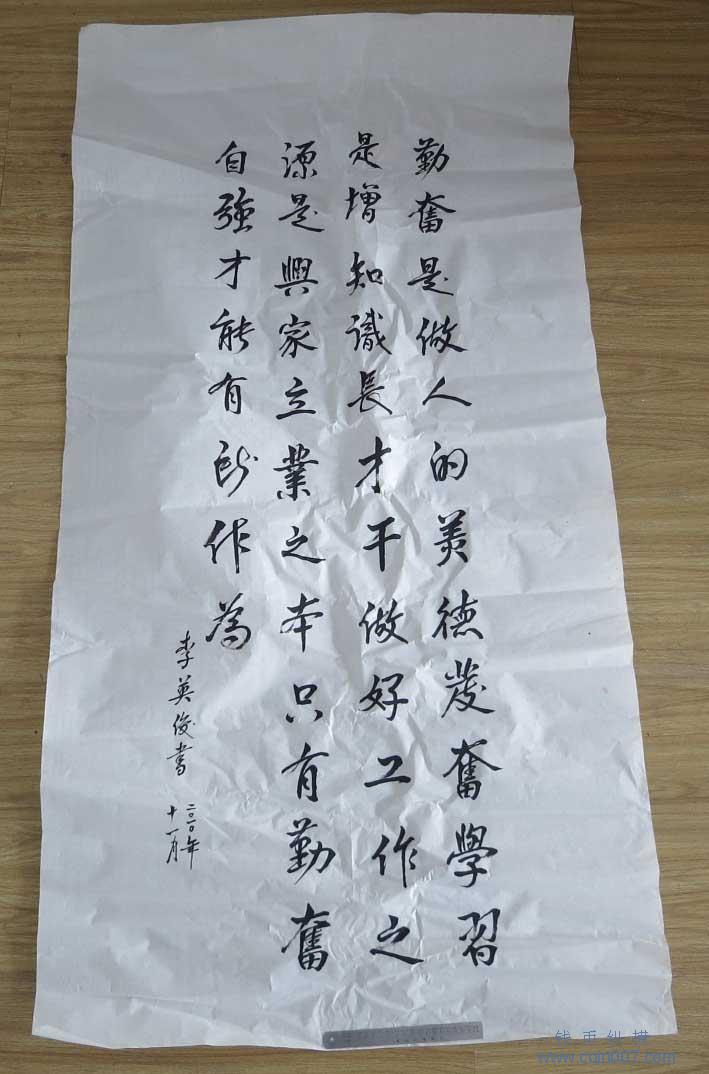 勤奮是做人的美德發奮學習
是增知識長才干做好工作之
源是興家立業之本只有勤奮
自強才能有所作為
李英俊書
二〇一〇年
十一月
钱币纵横
www.coin007.com